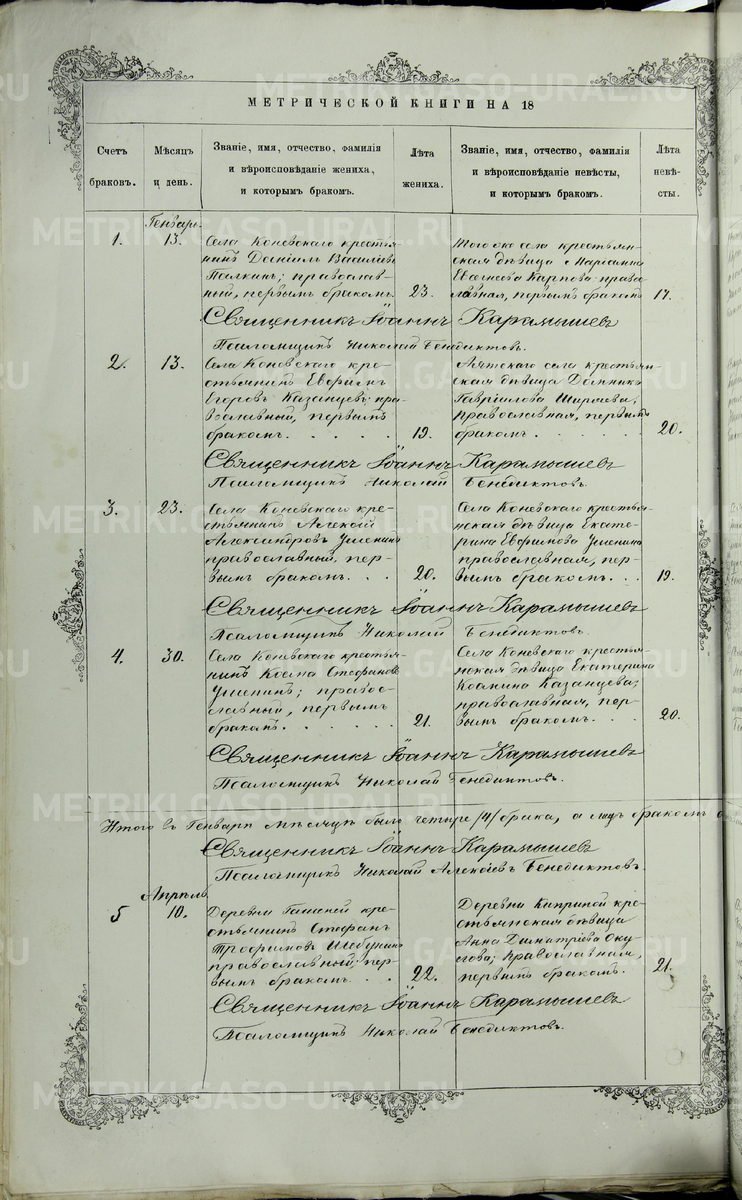 МЕТРИЧЕСКОЙ КНИГИ НА 18
Счетъ браковъ.
Мѣсяцъ и день.
Званіе, имя, отчество, фамилія и вѣроисповѣданіе жениха, и которымъ бракомъ.
Лѣта жениха.
Званіе, имя, отчество, фамилія и вѣроисповѣданіе невѣсты, и которымъ бракомъ.
Лѣта невѣсты.
Генварь
1.
13.
Села Коневскаго крестья-
нинъ Даніилъ Васильевъ
Палкинъ; православ-
ный, первымъ бракомъ
23.
Того же села крестьян-
ская дѣвица Маріамна
Евгенiева Карпова право-
славная, первымъ бракомъ
17.
Священникъ Іоаннъ Карамышевъ
Псаломщикъ Николай Бенедиктовъ.
2.
13.
Села Коневскаго кре-
стьянинъ Евфимъ
Егоровъ Казанцевъ; пра-
вославный, первымъ
бракомъ
19.
Аятскаго села крестьян-
ская дѣвица Домника
Гавріилова Ширяева;
православная, первымъ
бракомъ
20.
Священникъ Іоаннъ Карамышевъ
Псаломщикъ Николай Бенедиктовъ.
3.
23.
Села Коневскаго кре-
стьянинъ Алексій
Александровъ Ушенинъ
православный, пер-
вымъ бракомъ
20.
Села Коневскаго крестья-
нская дѣвица Екате-
рина Евфимова Ушенина
православная, пер-
вымъ бракомъ
19.
Священникъ Іоаннъ Карамышевъ
Псаломщикъ Николай Бенедиктовъ.
4.
30.
Села Коневскаго крестья-
нинъ Косма Стефановъ
Ушенинъ; право-
славный, первымъ
бракомъ
21.
Села Коневскаго крестья-
нская дѣвица Екатерина
Космина Казанцева;
православная, пер-
вымъ бракомъ
20.
Священникъ Іоаннъ Карамышевъ
Псаломщикъ Николай Бенедиктовъ.
Итого въ Генварѣ мѣсяцѣ было четыре /4/ брака, а лицъ бракомъ
Священникъ Іоаннъ Карамышевъ
Псаломщикъ Николай Алексѣевъ Бенедиктовъ.
Апрѣль
5
10.
Деревни кре-
стьянинъ Стефанъ
Трофимовъ Шебунинъ
православный; пер-
вымъ бракомъ
22.
Деревни Киприной кре-
стьянская дѣвица
Анна Димитріева Оку-
лова; православная,
первымъ бракомъ
21.
Священникъ Іоаннъ Карамышевъ
Псаломщикъ Николай Бенедиктовъ.
METRIKI.GASO-URAL.RU